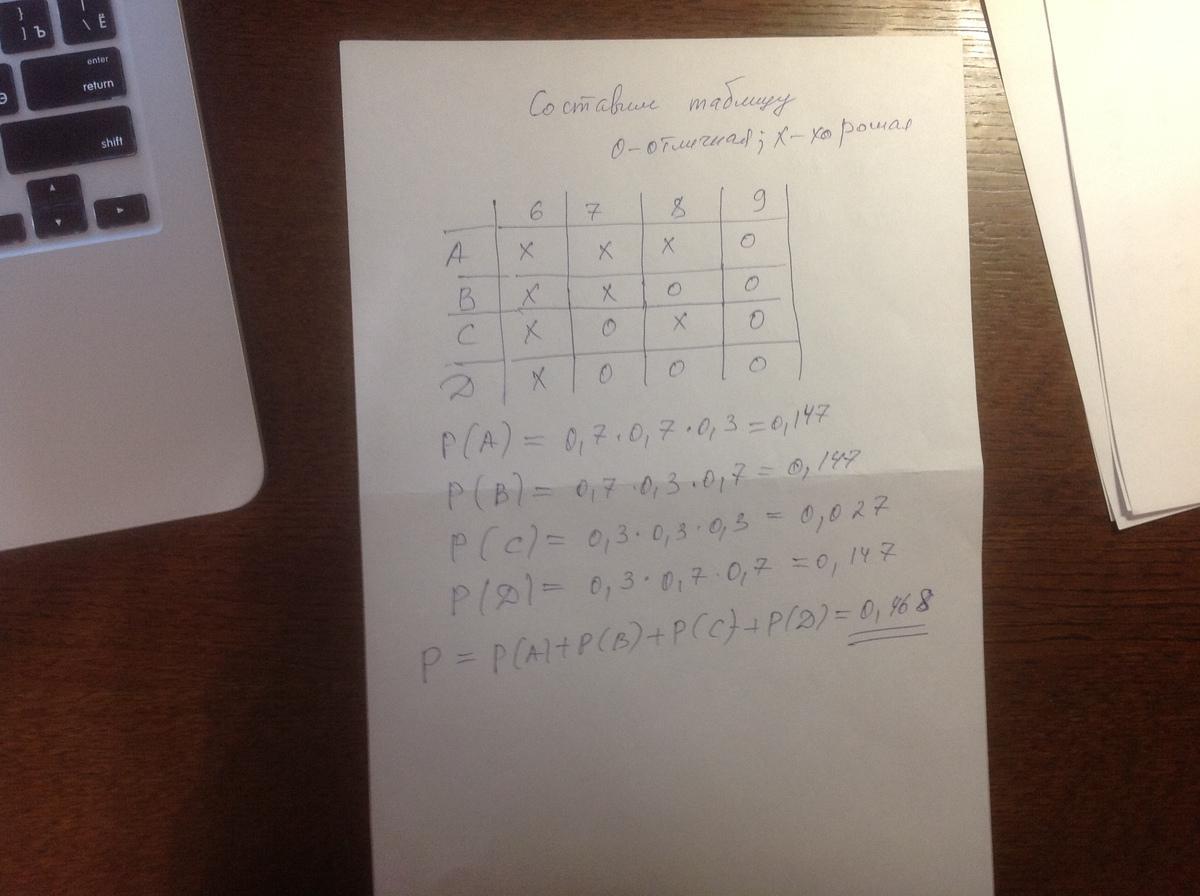 }
] Ъ
\ Ё
Э
enter
return
shift
Составим таблицу
О-отличная; Х-хорошая
6 7 8 9
A X X X O
B X X O O
C X O X O
D X O O O
P(A) = 0,7·0,7·0,3=0,147
P(B)= 0,7·0,3·0,7= 0,147
P(C)= 0,3·0,3·0,3 = 0,027
P(D)= 0,3·0,7·0,7 =0,147
P = P(A)+P(B)+P(C)+P(D)=0,468